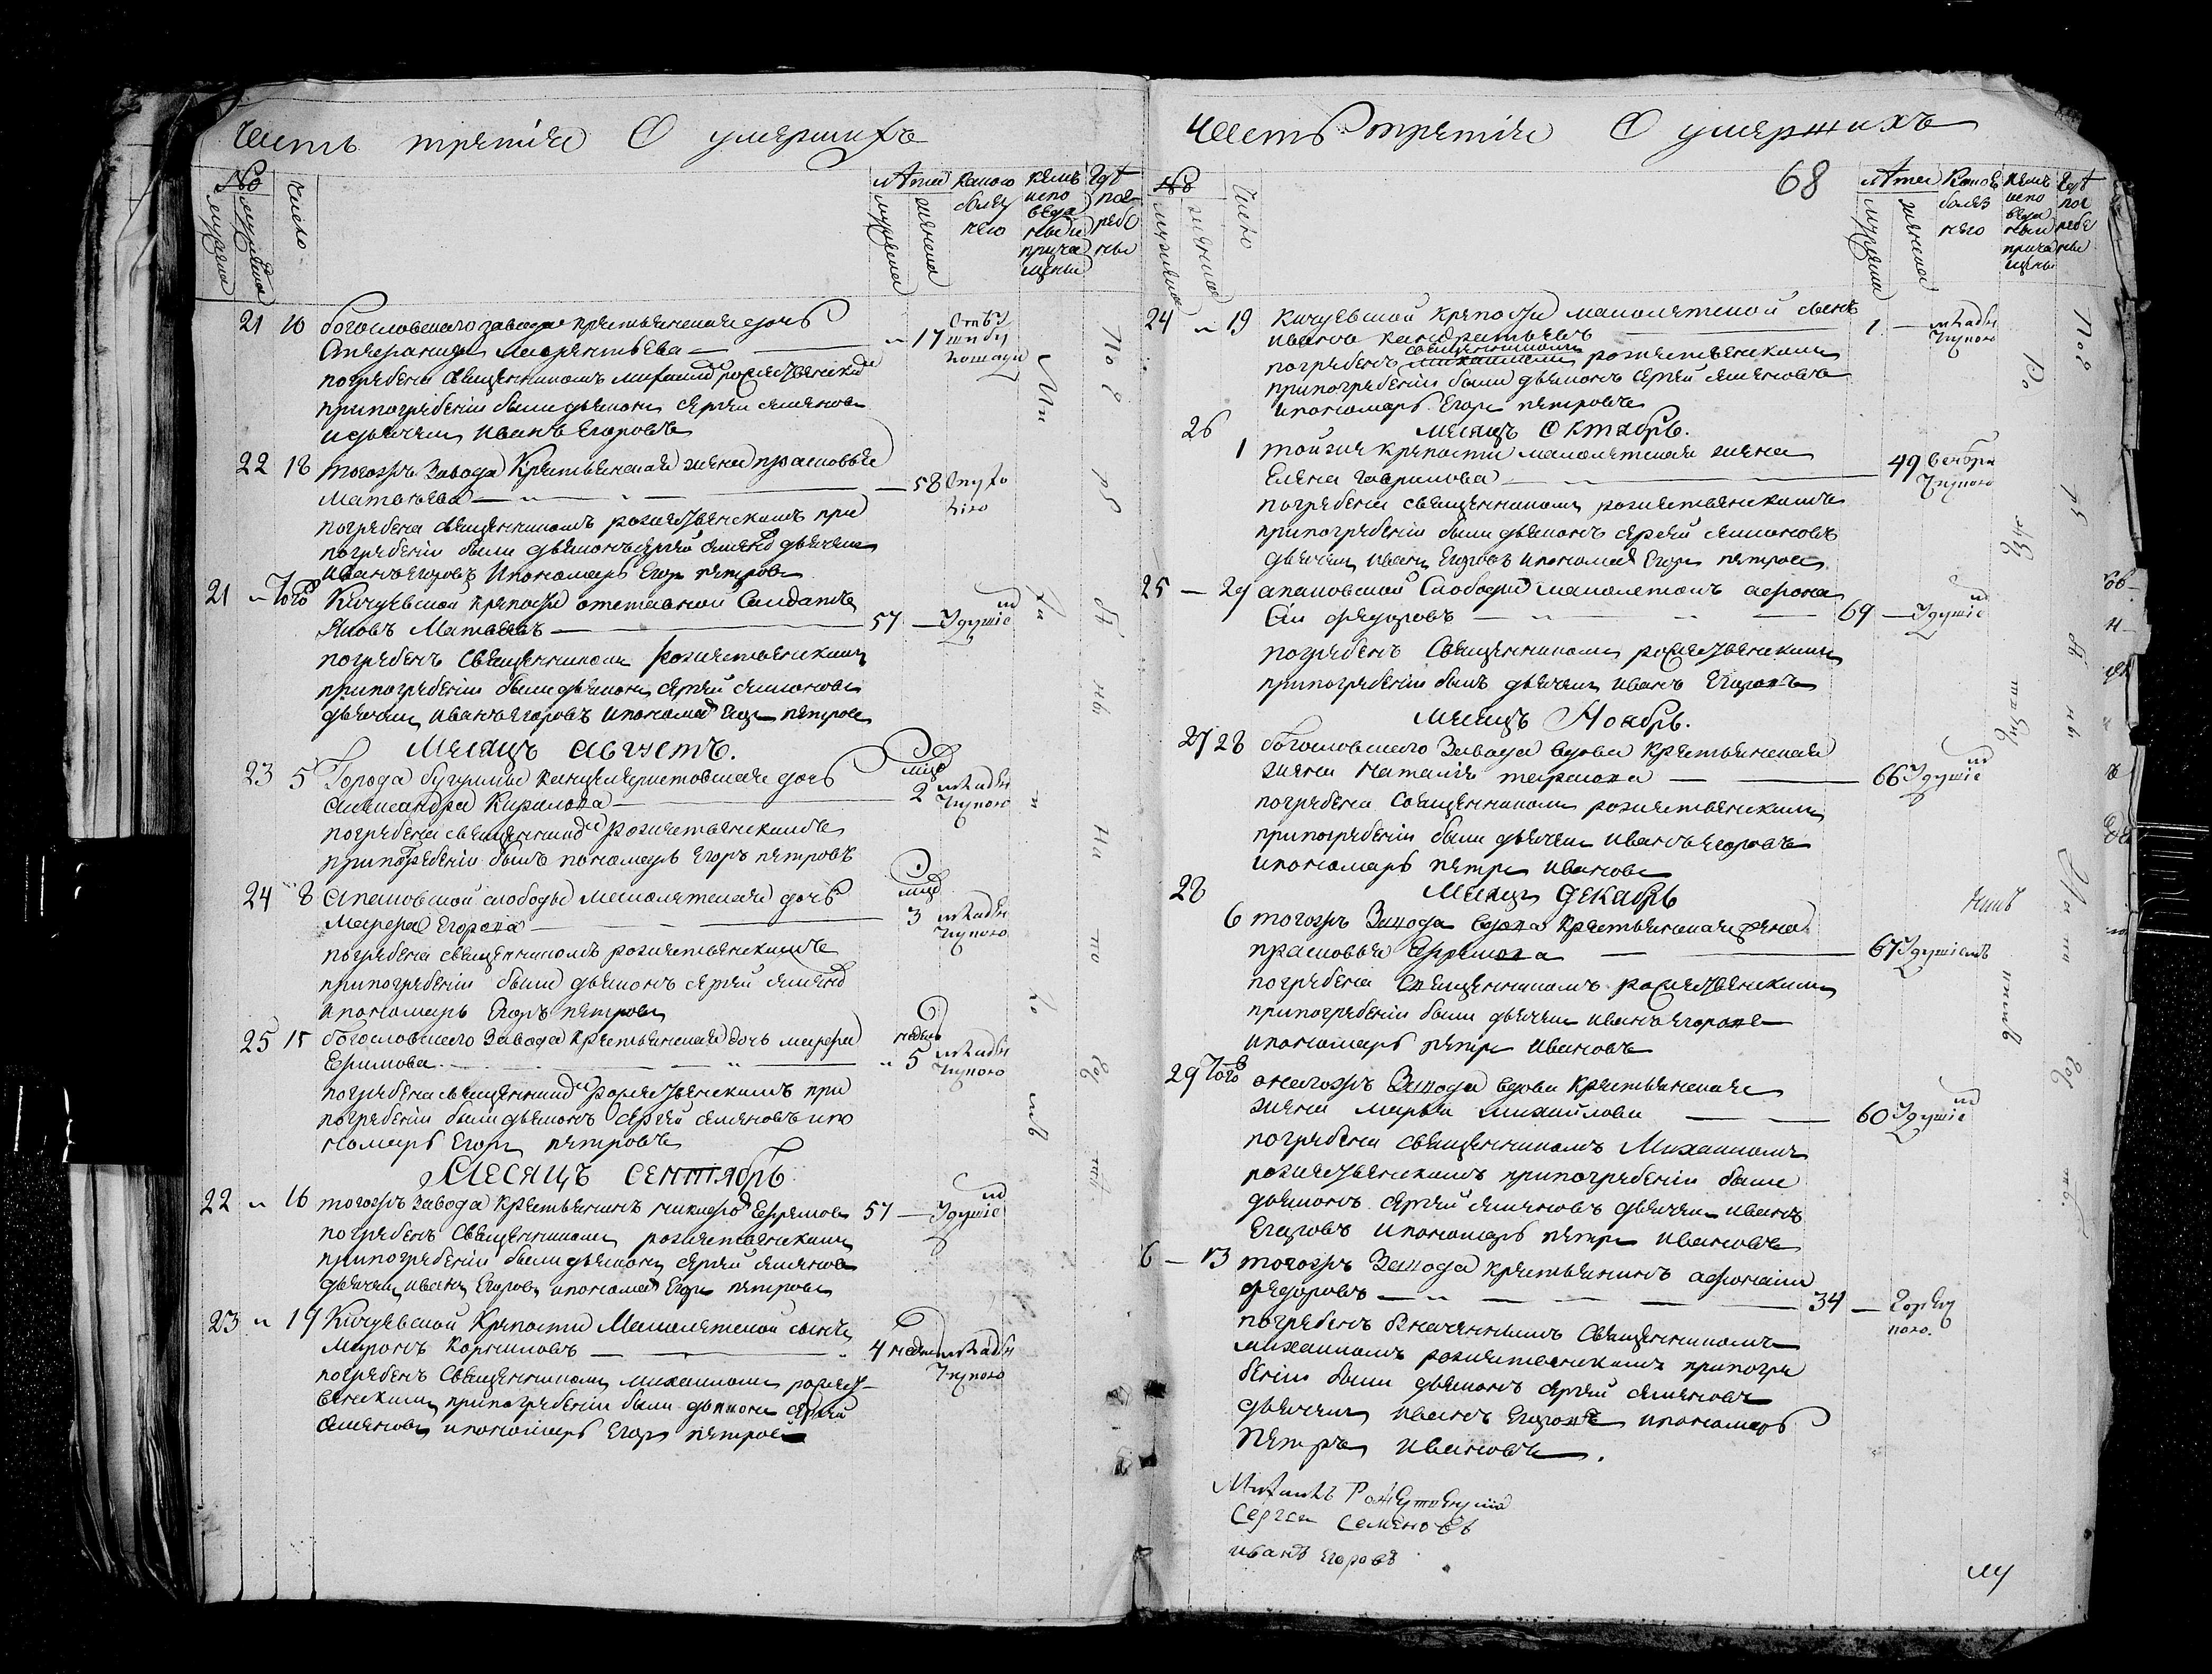 Часть третiя О умершихъ
№
Число
Лета
какою болез нею
кемъ испо веда ны и прича щены
где пог ребе ны
мужеска
женска
21 10 богословскаго завода крестьянская дочь
Лаврентьева — 17
погребена священникомъ михаиломъ рождественским
припогребенiи были дьяконъ сергей семеновъ
и дьячекъ иванъ Егоровъ
22 18 тогожъ завода Крестьянская жена прасковья
Матвеева — 58
погребена священникомъ рождественскимъ при
погребенiи были дьяконъ сергей семеновъ дьячекъ
Иванъ Егоровъ Ипономарь Егоръ петровъ
21 Того Кичуевской крепости отставной Салдатъ
Яковъ Матвеевъ — 57 — Удушiе
погребенъ Священникомъ рождественскимъ
припогребенiи были дьяконъ сергей семеновъ
дьячекъ иванъ Егоровъ Ипономарь Егоръ петровъ
Месяцъ августъ.
23 5 Города бугульмы канцеляристовская дочь
александра Кирилова — 2 младенческою
погребена священникомъ рождественскимъ
припогребенiи былъ пономарь Егоръ петровъ
24 8 слободы малолетская дочь
Марфа Егорова — 3 младенческою
погребена священникомъ рождественскимъ
припогребенiи были дьяконъ сергей семеновъ
ипономарь Егоръ петровъ
25 15 богословскаго Завода Крестьянская дочь марфа
Ефимова — 5 младенческою
погребена священникомъ рождественскимъ при
погребенiи были дьяконъ сергей семеновъ ипо
номарь Егоръ петровъ
МЕСЯЦЪ СЕНТЯБРЬ
22 16 тогожъ завода крестьянинъ никифоръ Ефремовъ 57 — Удушiе
погребенъ Священникомъ рождественскимъ
припогребенiи были дьяконъ сергей семеновъ
дьячекъ иванъ Егоровъ ипономарь Егоръ петровъ
23 19 Кичуевской Крепости Малолетской сынъ
Миронъ Корниловъ — 4 недели младенческою
погребенъ Священникомъ михаиломъ рождест
венскимъ припогребенiи были дьяконъ сергей
семеновъ ипономарь Егоръ петровъ
Часть третiя О умершихъ
68
№
Число
Лета
какою болез нею
кемъ испо веда ны и прича щены
где пог ребе ны
мужеска
женска
24 19 Кичуевской крепости малолетской сынъ
иванъ кандратьевъ 1 — младенческою
погребенъ священникомъ рождественскимъ
припогребенiи были дьяконъ сергей семеновъ
ипономарь Егоръ петровъ
26 месяцъ Октябрь.
1 тойжъ крепости малолетская жена
Елена Гаврилова — 49
погребена священникомъ рождественскимъ
припогребенiи были дьяконъ сергей семеновъ
дьячекъ иванъ Егоровъ ипономарь Егоръ петровъ
25 — 29 Слободы малолетокъ афона
сiй федоровъ — 69 — Удушiе
погребенъ Священникомъ рождественскимъ
припогребенiи былъ дьячекъ иванъ Егоровъ
месяцъ Ноябрь.
27 28 богословскаго Завода вдова крестьянская
жена наталiя — 66 Удушiе
погребена Священникомъ рождественскимъ
припогребенiи были дьячекъ иванъ Егоровъ
ипономарь петръ ивановъ
28 Месяцъ ДЕКАбрь
6 тогожъ Завода вдова Крестьянская жена
прасковья Ефремова — 67 Удушiемъ
погребена Священникомъ рождественскимъ
припогребенiи были дьячекъ иванъ Егоровъ
ипономарь петръ Ивановъ
29 Того онагожъ Завода вдова крестьянская
жена марья михайлова — 60 Удушiе
погребена священникомъ Михаиломъ
рождественскимъ припогребенiи были
дьяконъ сергей семеновъ дьячекъ иванъ
Егоровъ ипономарь петръ ивановъ
6 — 13 тогожъ Завода крестьянинъ афонасiй
федоровъ — 34 — Горячкою.
погребенъ Священникомъ
михаиломъ рождественскимъ припогре
бенiи были дьяконъ сергей семеновъ
дьячекъ иванъ Егоровъ ипономарь
петръ ивановъ.
Михаилъ Рождественскiй
Сергей Семеновъ
иванъ Егоровъ